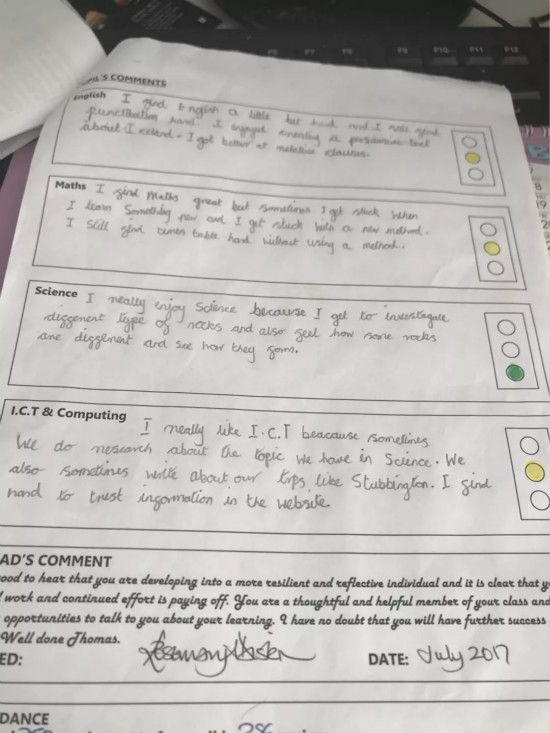 PUPIL'S COMMENTS
English I find English a little bit hard and I also find
punctuation hard. I enjoyed creating a persuasive text
about Iceland. I got better at relative clauses.
Maths I find Maths great but sometimes I get stuck when
I learn Something new and I get stuck with a new method.
I Still find times table hard without using a method.
Science I really enjoy Science because I get to investagate
different type of rocks and also feel how some rocks
are different and see how they form.
I.C.T & Computing I really like I.C.T beacause sometimes
We do research about the topic we have in Science. We
also sometimes write about our trips like Stubbington. I find
hard to trust information in the website.
AD'S COMMENT
ood to hear that you are developing into a more resilient and reflective individual and it is clear that y
work and continued effort is paying off. You are a thoughtful and helpful member of your class and
opportunities to talk to you about your learning. I have no doubt that you will have further success
Well done Thomas.
ED: DATE: July 2017
DANCE
F9 F10 F11 F12